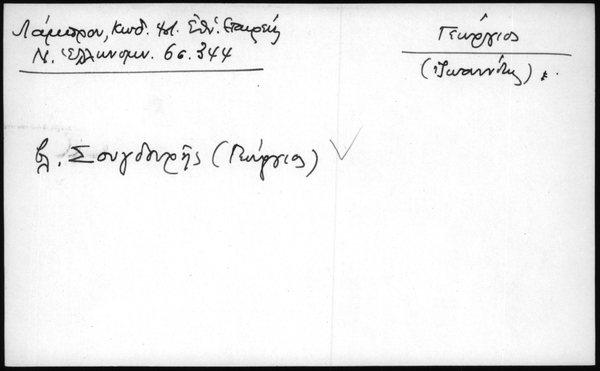 Λάμπρου, Κωδ. Ἐθν. Ἑταιρείας
Ν. Ἑλληνομν. 6σ. 344
Γεώργιος
(Ἰωαννίτης)
βλ. Σουγδουρῆς (Γεώργιος)